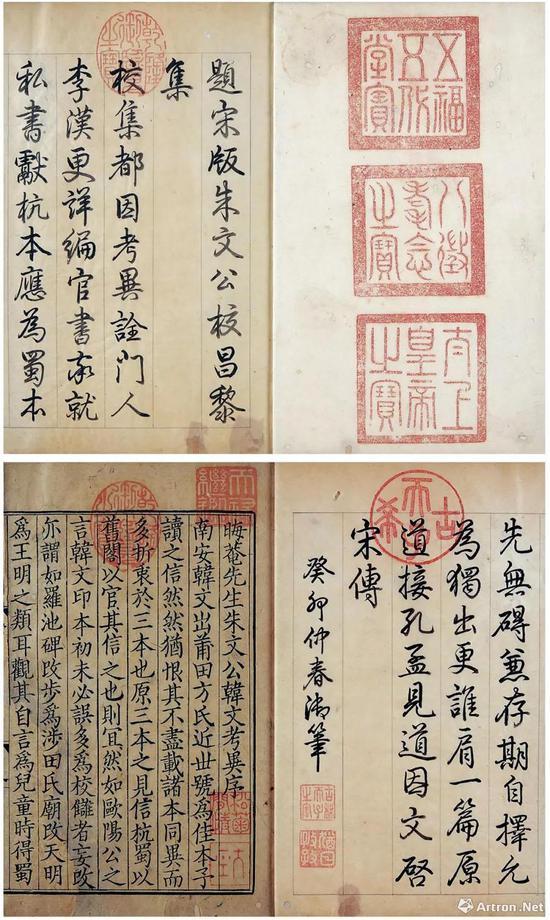 五福五代堂寶
八徵耄念之寶
太上皇帝之寶
乾隆御覽之寶
題宋版朱文公校昌黎
集
校集都因考異詮門人
李漢更詳編官書家就
私書獻杭本應為蜀本
古稀天子
先無礙兼存期自擇允
為獨出更誰肩一篇原
道接孔孟見道因文啓
宋傳
癸卯仲春御筆
古稀天子之寶
猶日孜孜
天祿繼鑑
乾隆御覽之寶
晦菴先生朱文公韓文考異序
南安韓文出莆田方氏近世號爲佳本予
讀之信然然猶恨其不盡載諸本同異而
多折衷於三本也原三本之見信杭蜀以
舊閣以官其信之也則宜然如歐陽公之
言韓文印本初未必誤多爲校讎者妄改
亦謂如羅池碑改步爲涉田氏廟改天明
爲王明之類耳觀其自言爲兒童時得蜀
Artron.Net